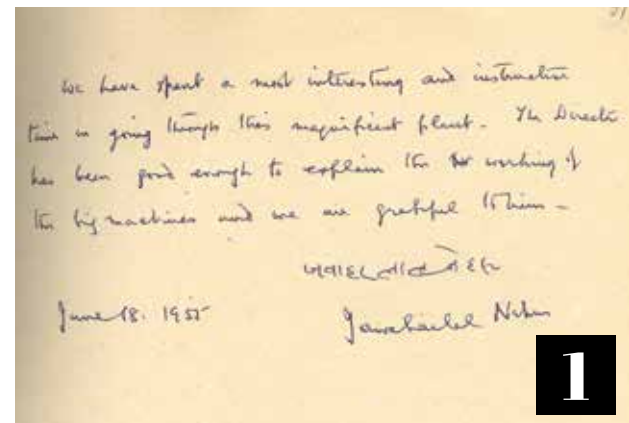 21
We have spent a most interesting and instructive
time in going through this magnificent plant. The Director
has been good enough to explain the working of
the big machines and we are grateful to him –
जवाहरलाल नेहरू
June 18. 1955
Jawaharlal Nehru
1